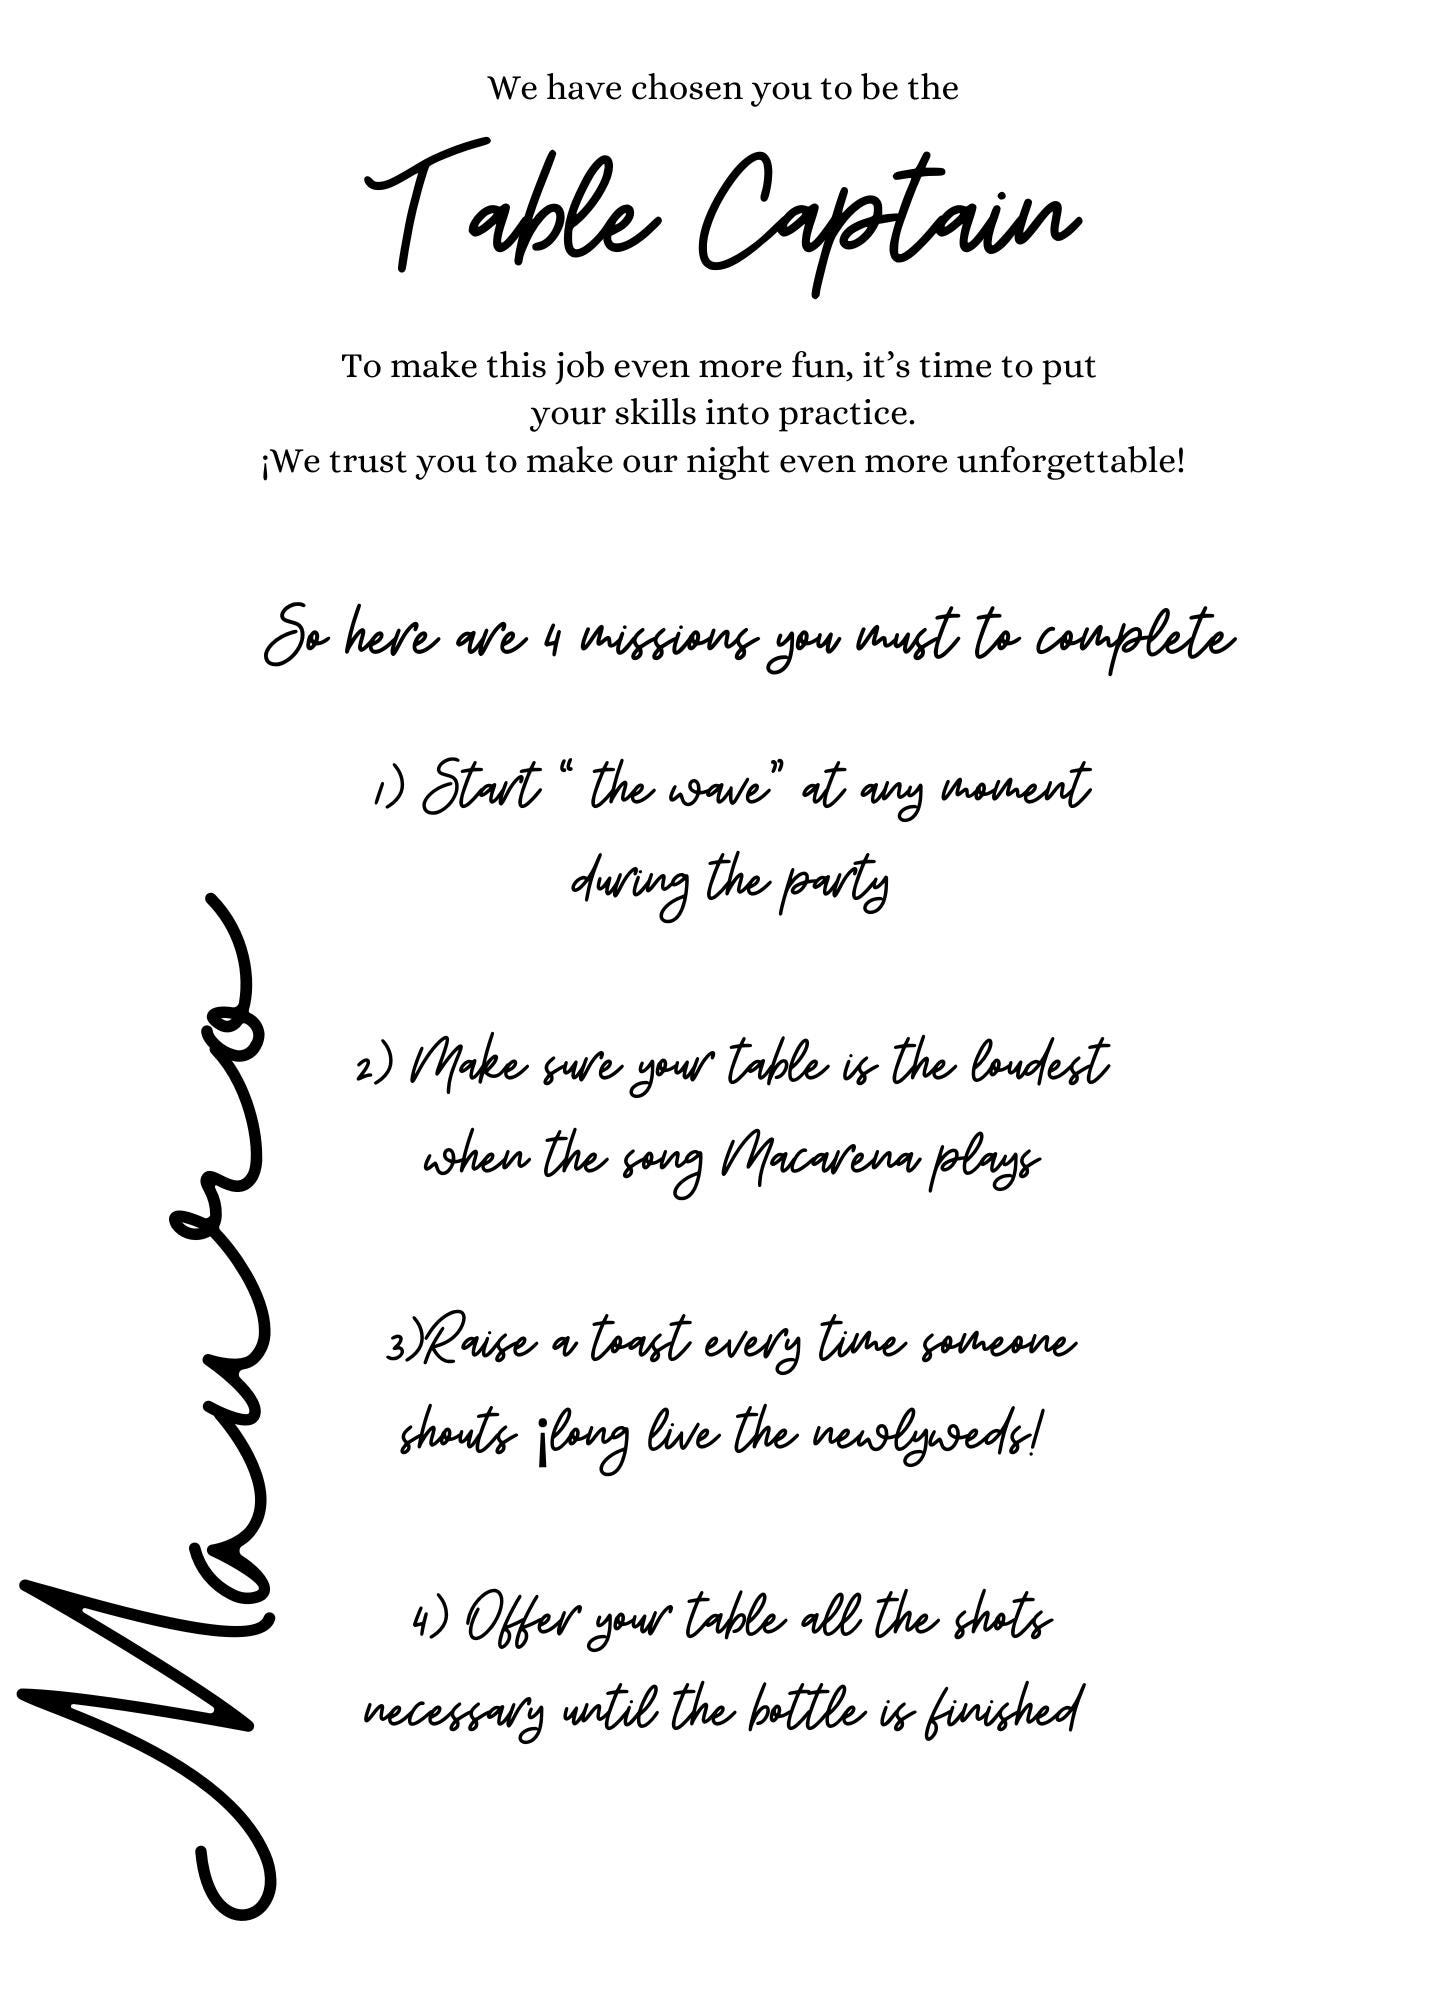 We have chosen you to be the
Table Captain
To make this job even more fun, it’s time to put
your skills into practice.
¡We trust you to make our night even more unforgettable!
So here are 4 missions you must to complete
1) Start “ the wave” at any moment
during the party
2) Make sure your table is the loudest
when the song Macarena plays
3)Raise a toast every time someone
shouts ¡long live the newlyweds!
4) Offer your table all the shots
necessary until the bottle is finished
Mauro